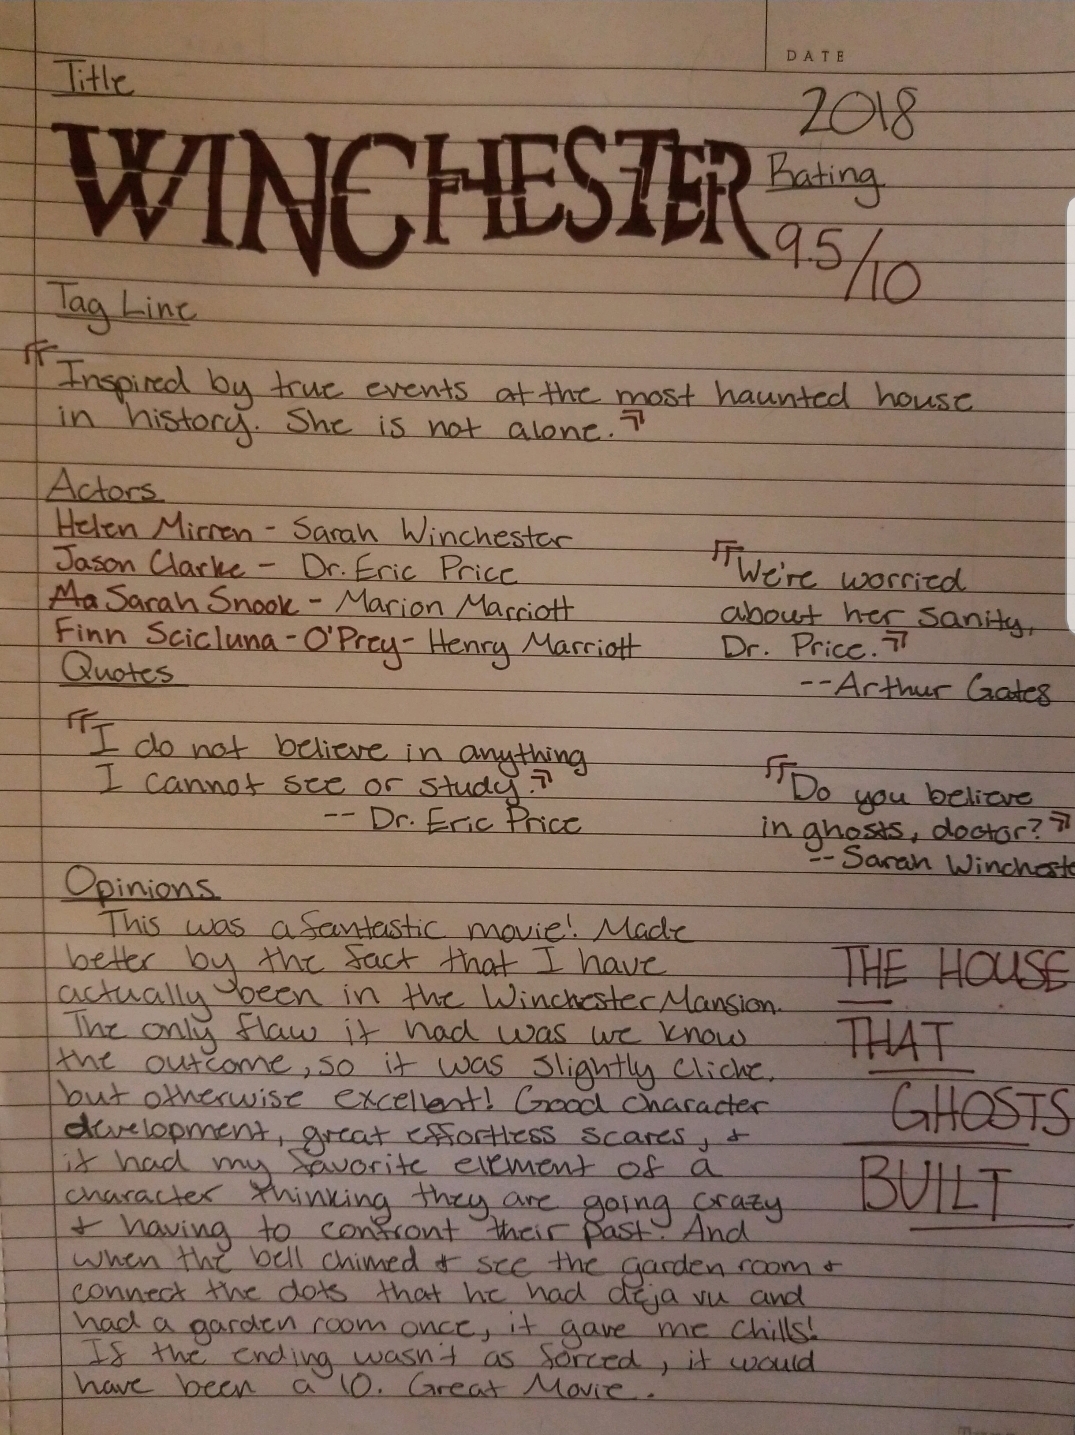 DATE
Title
2018
WINCHESTER
Rating
9.5/10
Tag Line
"Inspired by true events at the most haunted house
in history. She is not alone."
Actors
Helen Mirren - Sarah Winchester
Jason Clarke - Dr. Eric Price
Sarah Snook - Marion Marriott
Finn Scicluna-O'Prey- Henry Marriott
"We're worried
about her sanity,
Dr. Price."
--Arthur Gates
Quotes
"I do not believe in anything
I cannot see or study."
-- Dr. Eric Price
"Do you believe
in ghosts, doctor?"
--Sarah Wincheste
Opinions
This was a fantastic movie! Made
better by the fact that I have
actually been in the Winchester Mansion.
The only flaw it had was we know
the outcome, so it was slightly cliche,
but otherwise excellent! Good character
development, great effortless scares, &
it had my favorite element of a
character thinking they are going crazy
& having to confront their past. And
when the bell chimed & see the garden room &
connect the dots that he had deja vu and
had a garden room once, it gave me chills!
If the ending wasn't as forced, it would
have been a 10. Great Movie.
THE HOUSE
THAT
GHOSTS
BUILT